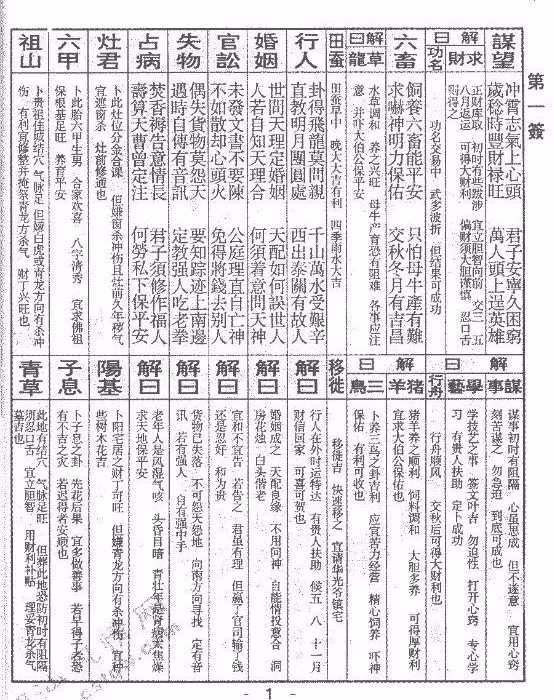 第一簽
謀望
冲霄志氣上心頭 君子安寧久困窮
歲稔時豐財禄旺 萬人頭上逞英雄
解曰
求財
正财库取 初时有些跋涉 宜立胆智向前 交三 五
八月返运 可得大财利 偏财须大胆谨慎 忍口舌
可得之
功名
功名交易中 武多波折 但结果可成功
六畜
飼養六畜能平安 只怕母牛產有難
求嚇神明力保佑 交秋冬月有吉昌
解曰
草龍
水草调和 养之兴旺 母牛产育恐有阻难 各事应注
意 并吓大伯公保佑平安
田蚕
田蚕早中 晚大大吉有利 四季雨水大吉
行人
卦得飛龍莫問親 千山萬水受艱辛
直教明月團圓處 西出泰關有故人
婚姻
世問天理定婚姻 天配如何誤世人
人若自知天理合 何須着意問天神
官訟
未發文書不要陳 公庭理直自亡神
不如散却心頭火 免得將錢去别人
失物
偶失貨物莫怨天 要知踪迹上南邊
遇時自傳有音訊 定教强人吃老拳
占病
焚香禱告意情長 君子須修作福人
壽算天曹曾定注 何勞私下保平安
灶君
卜此灶位分金合课 但嫌窗杀冲伤且灶前久年移气
宜遮窗杀 灶前修通也
六甲
卜此胎六甲生男 合家欢喜 八字清秀 宜求佛祖
保根基足旺 养育平安
祖山
卜贵祖佳成结穴 气脉足旺 但嫌白虎或青龙方向有杀冲
伤 有利宜修整并掩祭青龙方杀气 财丁兴旺也
解曰
謀事
谋事初时有阻隔 心虽思成 但不逢意 宜用心窍
刻苦谋之 勿急迫 到底可成也
學藝
学技艺之事 签文叶吉 勿迫性 打开心窍 专心学
习 有贵人扶助 定卜成功
行舟
行舟顺风 交秋后可得大财利也
解曰
猪羊
猪羊养之顺利 饲料调和 大胆多养 可得厚财利
宜求大伯公保佑也
三鳥
卜养三鸟之卦吉利 应宜苦力经营 精心饲养 吓神
保佑 有利可收也
移徙
移徙吉 快速移之 宜请华光爷镇宅
解曰
行人在外时运特达 有贵人扶助 候五 八 十一月
财信回家 可喜可贺也
解曰
婚姻成之 天配良缘 不用问神 自能情投意合 洞
房花烛 白头偕老
解曰
宜和不宜告 若告之 君虽有理 但赢了官司输了钱
还是忍好 和为贵
解曰
货物已失落 不可怨天怨地 向南方寻找 定有音
讯 若有强人 自有强中手
解曰
老年人是风湿气咳 头昏目暗 青壮年是肾病太焦燥
求天地保平安
陽基
卜阳宅居之财丁可旺 但嫌青龙方向有杀冲伤 宜种
些树木花吉
子息
卜子息之卦 先花后果 宜多做善事 若早得子者恐
有不吉之灾 若迟得者安顺也
青草
此地有结穴 气脉足旺 但葬此地恐防初时有阻隔
须忍口舌 宜立胆智 用财利补贴 理妥青龙杀气
墓吉也
- 1 -